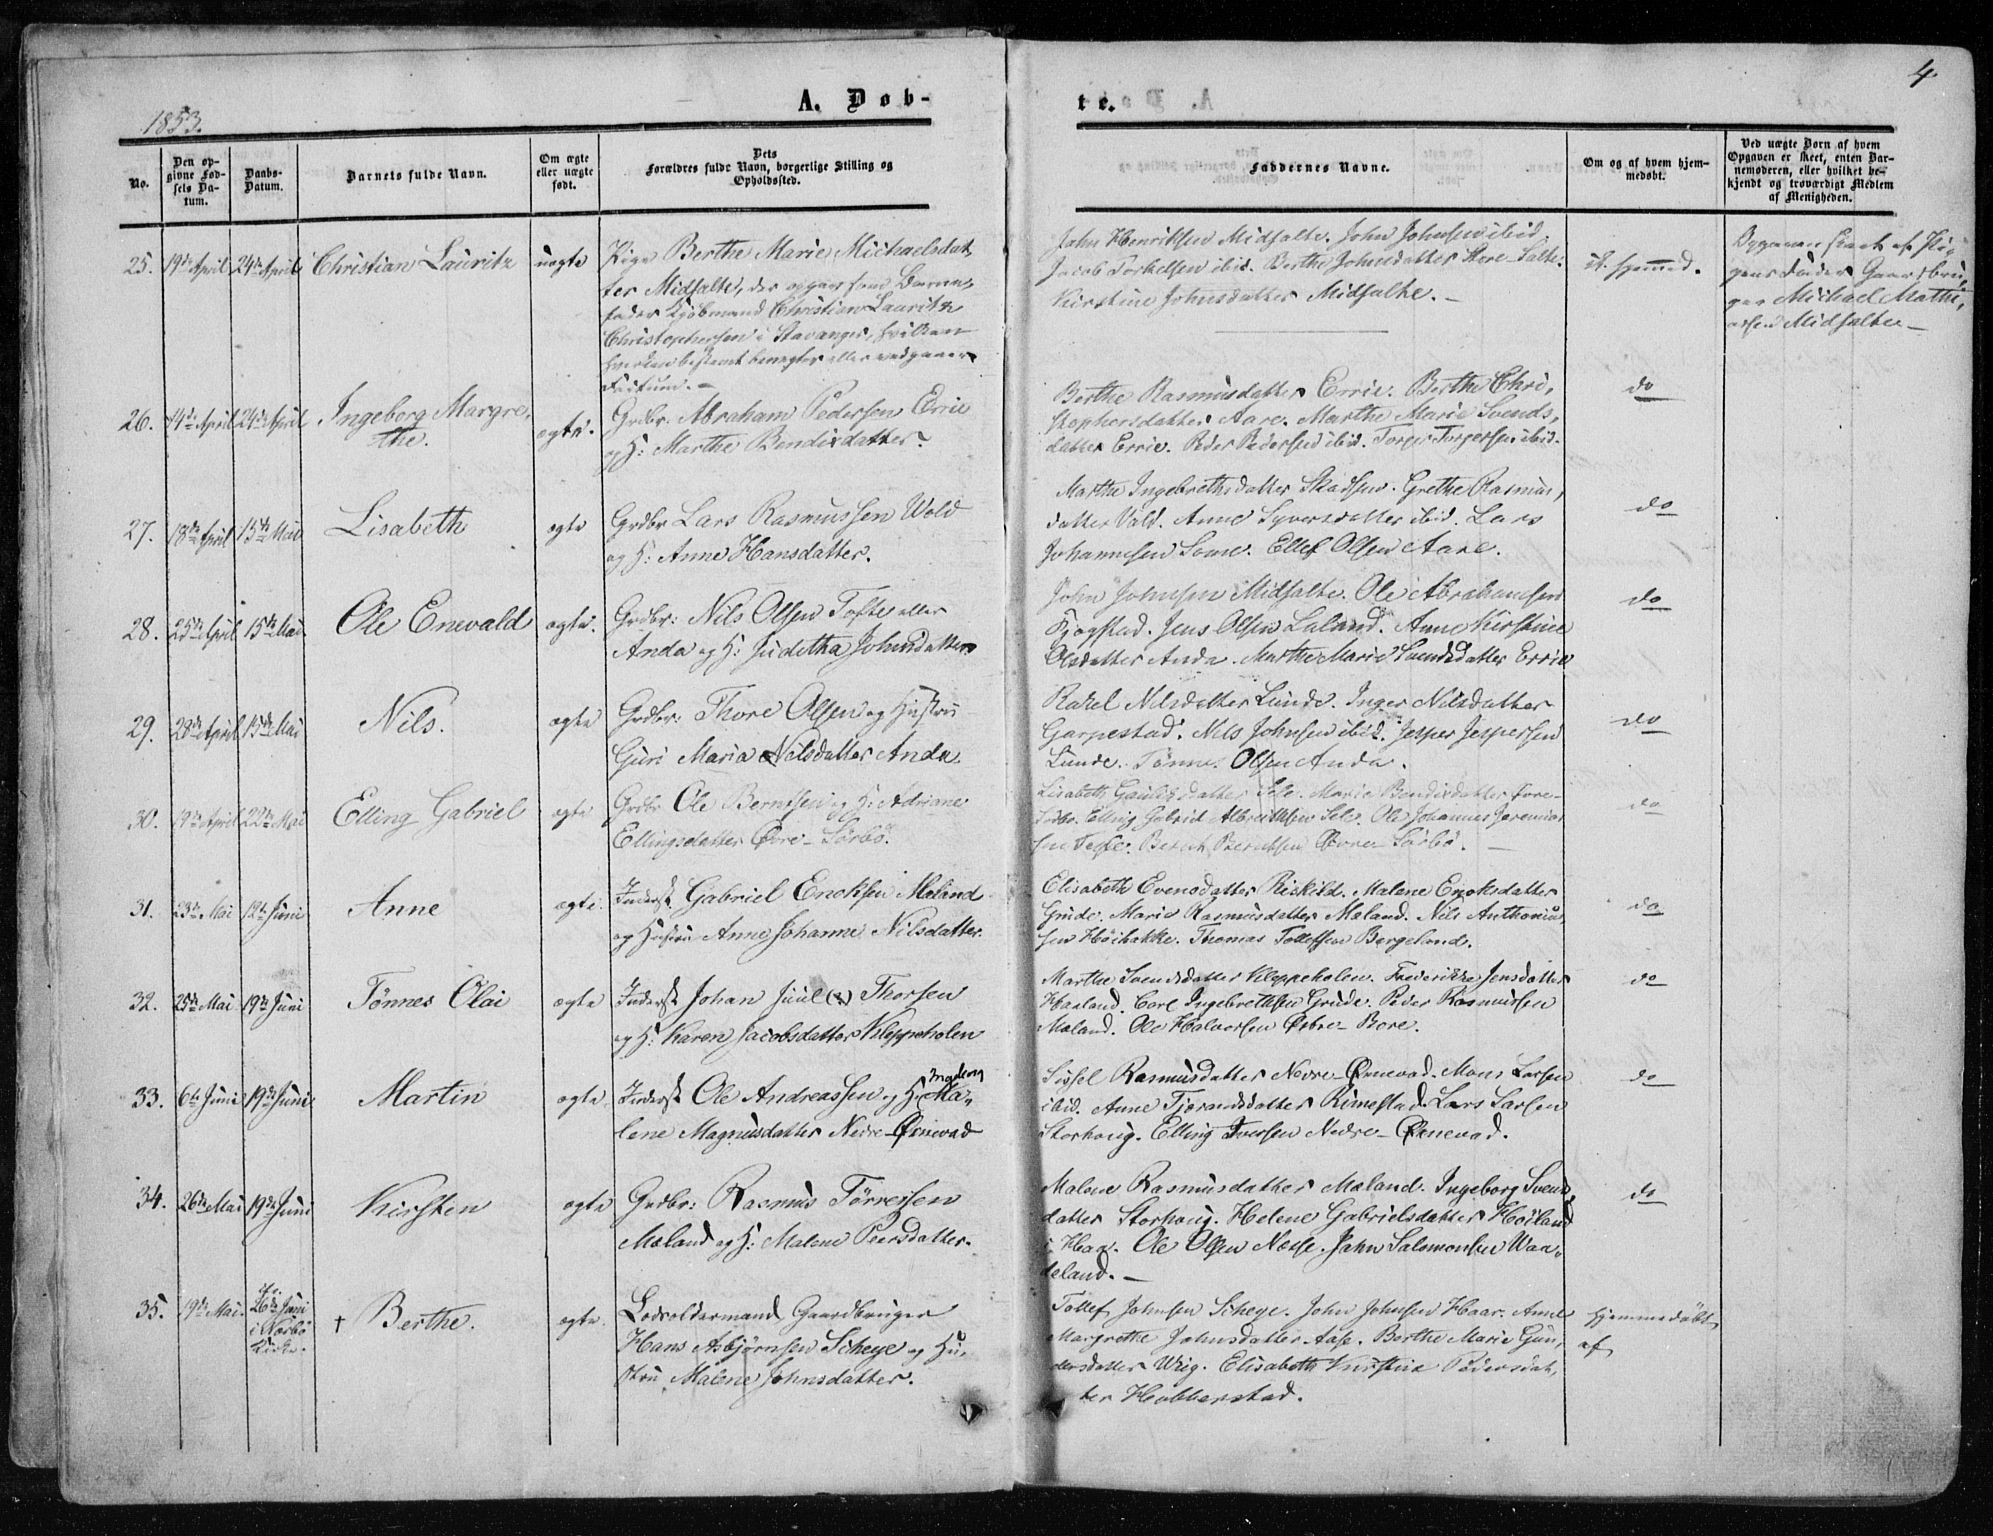 4.
1853.
A. Døb-
te.
No.
Den op-
givne Fød-
sels Da-
tum.
Daabs-
Datum.
Barnets fulde Navn.
Om ægte
eller uægte
født.
Dets
Forældres fulde Navn, borgerlige Stilling og
Opholdssted.
Faddernes Navne.
Om og af hvem hjem-
medøbt.
Ved uægte Born af hvem
Opgaven er skeet, enten Bar-
nemoderen, eller hvilket be-
kjendt og troværdigt Medlem
af Menigheden.
25. 19de April 24de April Christian Lauritz uægte
Pige Berthe Marie Michaelsdat,
ter Midsalte, der opgav som Barne,
fader Kjøbmand Christian Lauritz
Christophersen i Stavanger, hvilken
hverken bestemt benegter eller vedgaaer
Factum. -
John Henriksen Midsalte. John Johnsen ibid.
Jacob Torkelsen ibid. Berthe Johnsdatter Store-Salte.
Kirstine Johnsdatter Midsalte. -
ei hjemmed.
Opgaven skeet af Pi,
gens Fader Gaardbru,
ger Michael Mathi,
assen Midsalte -
26. 14de April 24de April Ingeborg Margre,
the. ægte.
Grdbr. Abraham Pedersen Errie
og H: Marthe Bendixdatter.
Berthe Rasmusdatter Errie. Berthe Chri,
stophersdatter Aare. Marthe Marie Svends,
datter Errie. Peder Pedersen ibid. Torger Torgersen ibid.
do
27. 18de April 15de Mai Lisabeth ægte
Grdbr Lars Rasmussen Wold
og H: Anne Hansdatter.
Marthe Ingebrethsdatter Skadsem. Grethe Rasmus,
datter Vold. Anne Syversdatter ibid. Lars
Johannesen Some. Ellef Olsen Aare.
do
28. 25de April 15de Mai Ole Enevald ægte.
Grdbr: Nils Olsen Tofte eller
Anda og H: Juditha Johnsdatter
John Johnsen Midsalte. Ole Abrahamsen
Fjogstad. Jens Olsen Laland. Anne Kirstine
Olsdatter Anda. Marthe Marie Svendsdatter Errie
do
29. 28de April 15de Mai Nils. ægte
Grdbr: Thore Olsen og Hustru
Guri Maria Nilsdatter Anda.
Rakel Nilsdatter Lunde. Inger Nilsdatter
Garpestad. Nils Johnsen ibid. Jesper Jespersen
Lunde. Tønnes Olsen Anda.
do
30. 19de April 22de Mai Elling Gabriel ægte
Grdbr Ole Berntsen og H: Adriane
Ellingsdatter Øvre-Sørbø.
Lisabeth datter Sele. Marie Bendixdatter Øvre-
Sørbø. Elling Gabriel Albretthsen Sele. Ole Johannes Jeremias
sen Tegle. Berent Berentsen Øvre Sørbø. -
do
31. 23de Mai 12te Juni Anne ægte.
Inderst Gabriel Enoksen Maland
og Hustru Anne Johanne Nilsdatter.
Elisabeth Evensdatter Riskild. Malene Enoksdatter
Grude. Marie Rasmusdatter Maland. Nils Anthonius
sen Høibakke. Thomas Tollefsen Bergeland.
do
32. 25de Mai 19de Juni Tønnes Olai ægte
Inderst Johan Juul (?) Thorsen
og H: Karen Jacobsdatter Kleppeholen
Marthe Svendsdatter Kleppeholen. Frederikke Jensdatter
Haaland. Carl Ingebretthsen Grude. Peder Rasmussen
Maland. Ole Halvorsen Østre-Bore.
do
33. 6te Juni 19de Juni Martin ægte
Inderst Ole Andreassen og H: Ma,
lene Magnusdatter Nedre-Ørnevad
Sissel Rasmusdatter Nedre-Ørnevad. Mons Larsen
ibid. Anne Tjerandsdatter Rimestad. Lars Larsen
Storhoug. Elling Iversen Nedre-Ørnevad.
do
34. 26de Mai 19de Juni Kirsten ægte
Grdbr: Rasmus Tørresen
Maland og H: Malene Peersdatter.
Malene Rasmusdatter Maland. Ingeborg Svens
datter Storhoug. Helene Gabrielsdatter Høiland
i Haa. Ole Olsen Næse. John Salomonsen Waa,
deland. -
do
35. 19de Mai. 26de Juni
i Nærbø
Kirke. † Berthe. ægte.
Lodsoldermand Gaardbruger
Hans Asbjørnsen Scheye og Hu,
stru Malene Johnsdatter.
Tollef Johnsen Scheye. John Johnsen Haar. Anne
Margrethe Johnsdatter Aase. Berthe Marie Gun,
dersdatter Wiig. Elisabeth Kirstine Pedersdat,
ter Hobberstad.
Hjemmedøbt
af